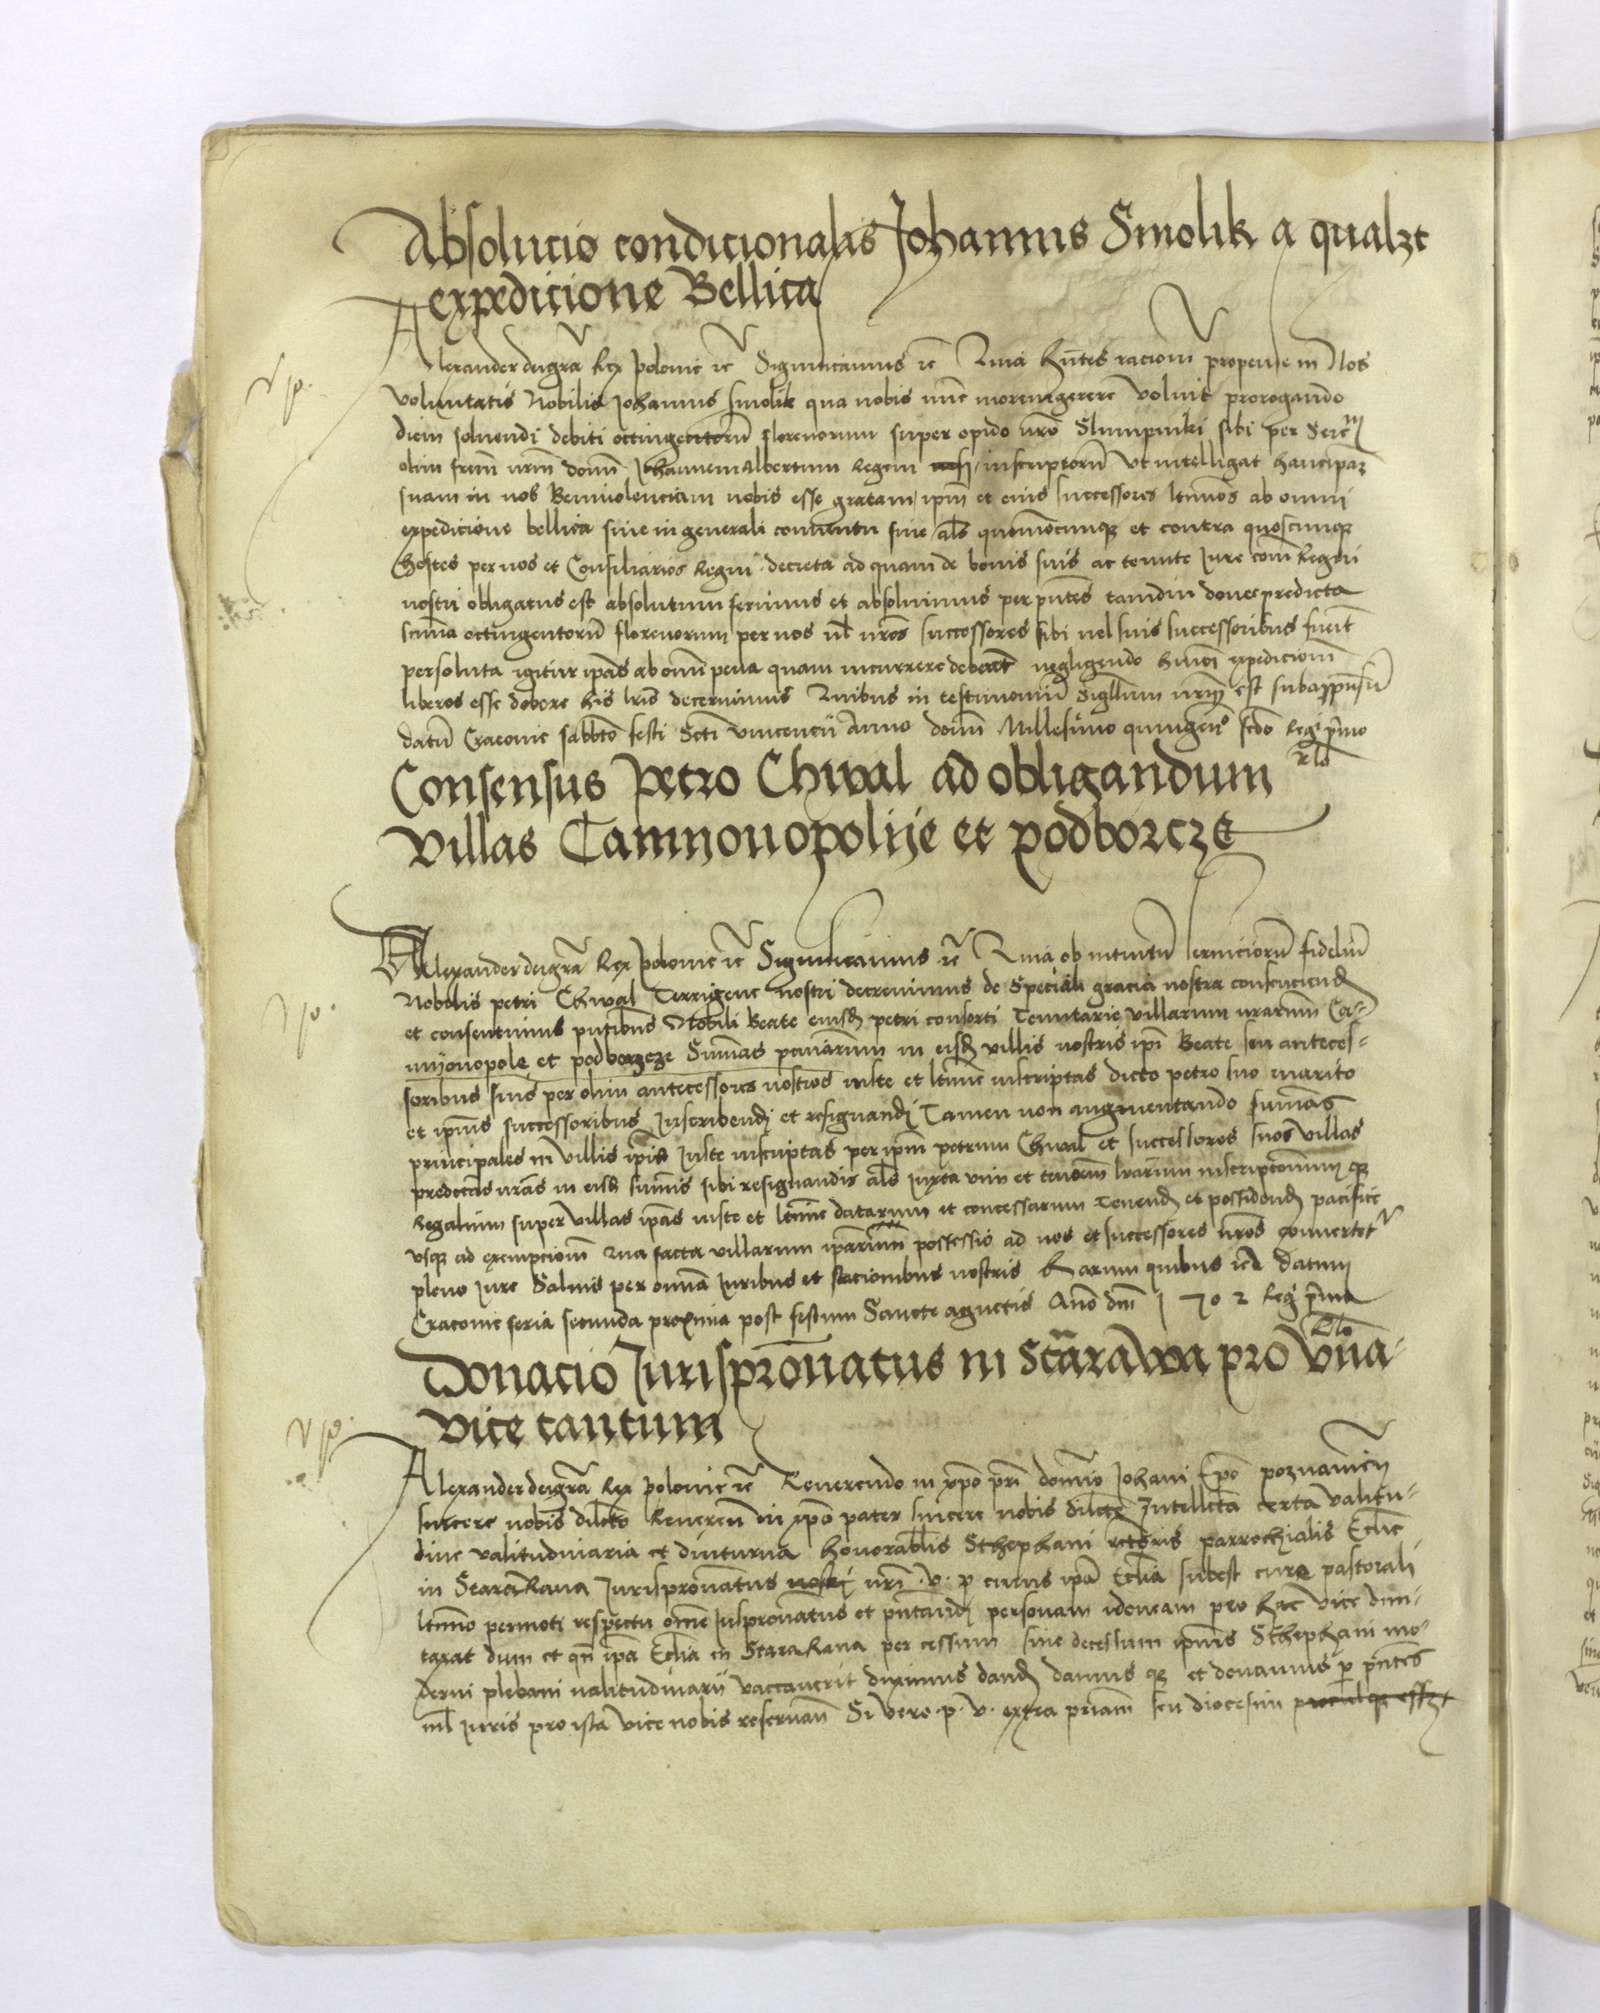 Absolucio condicionalis Johannis Smolik a qualzt
expedicione Bellica
Alexander dei gra Rex polonie ec Significamus ec Quia hntes racioni propense in Nos
voluntatis Nobilis Johannis Smolik qua nobis nunc morem gerere voluit prorogando
diem solvendi debiti octingentorum florenorum super opido nro Slumpniki sibi per Sermum
olim frem nrm domi Johannem Albertum Regem inscriptorum Ut intelligat hancipaz
suam in nos Benivolenciam nobis esse gratam ipm et eius successores ltimos ab omni
expedicione bellica sive in generali conventu sive als quomocunqz et contra quoscunqz
hostes per nos et Consiliarios Regni decreta ad quam de bonis suis ac tenute Jure com Regni
nostri obligatus est absolutum fecimus et absolvimus per pntes tamdiu donec predicta
summa octingentorum florenorum per nos vl nros successores sibi vel suis successoribus fuerit
persoluta igitur ipos ab omni pena quam incurrere deberent negligendo hmoi expedicioni
liberos esse debere his lris decernimus Quibus in testimonium Sigillum nrm est subappensum
datum Cracovie sabbto festi Scti Vincencii Anno domi Millesimo quingens scdo Reg primo
Rlo
Consensus Petro Chwal ad obligandum
villas Camyonopolije et podborcze
Alexander dei gra Rex polonie ec Significamus ec Quia ob intuitum serviciorum fidelium
Nobilis petri Chwal Terrigene nostri decrevimus de Speciali gracia nostra consenciend
et consentimus pntibus Nobili Beate eiusd petri consorti Tenutarie villarum nrarum Ca-
myonopole et podborzcze Summas pecuniarum in eisd villis nostris ipi Beate seu anteces-
soribus suis per olim antecessores nostros iuste et ltime inscriptas dicto petro suo marito
et ipius successoribus Inscribendi et resignandi Tamen non augmentando summas
principales in villis ipis iuste inscriptas per ipm petrum Chwal et successores suos villas
predictas nras in eisd summis sibi resignandis als iuxta vim et tenorem lrarum inscripcionum qz
Regalium super villas ipas iuste et ltime datarum et concessarum Tenend et possidend pacifice
usqz ad exempcionem Qua facta villarum iparum possessio ad nos et successores nros convertet
pleno iure Salvis per omnia Iuribus et stacionibus nostris Harum quibus ec Datum
Cracovie feria secunda proxima post festum Sancte agnetis Anno dm 1502 Reg primo
Rlo
Donacio Jurisproнatus in Stharawa pro vna-
vice tantum
Alexander dei gra Rex polonie ec Reverendo in xpo pri domino Johani Epo poznanien
sincere nobis dilcto Reveren in xpo pater sincere nobis dilcte Intellecta certa valitu-
dine valitudinaria et diuturna honorabilis Sthephani rectoris parrochialis Ecclie
in Stararana Jurispronatus nri v p cuius ipa Ecclia subest cure pastorali
ltimo permoti respectu omne Juspronatus et pntandi personam idoneam pro hac vice dum-
taxat dum et qn ipa Ecclia in Stararana per cessum sive decessum ipius Sthephani mo-
derni plebani valitudinarii vaccaverit duximus dand damus qz et donamus per pntes
nil iuris pro ista vice nobis reservan Si vero p v extra priam seu diocesim